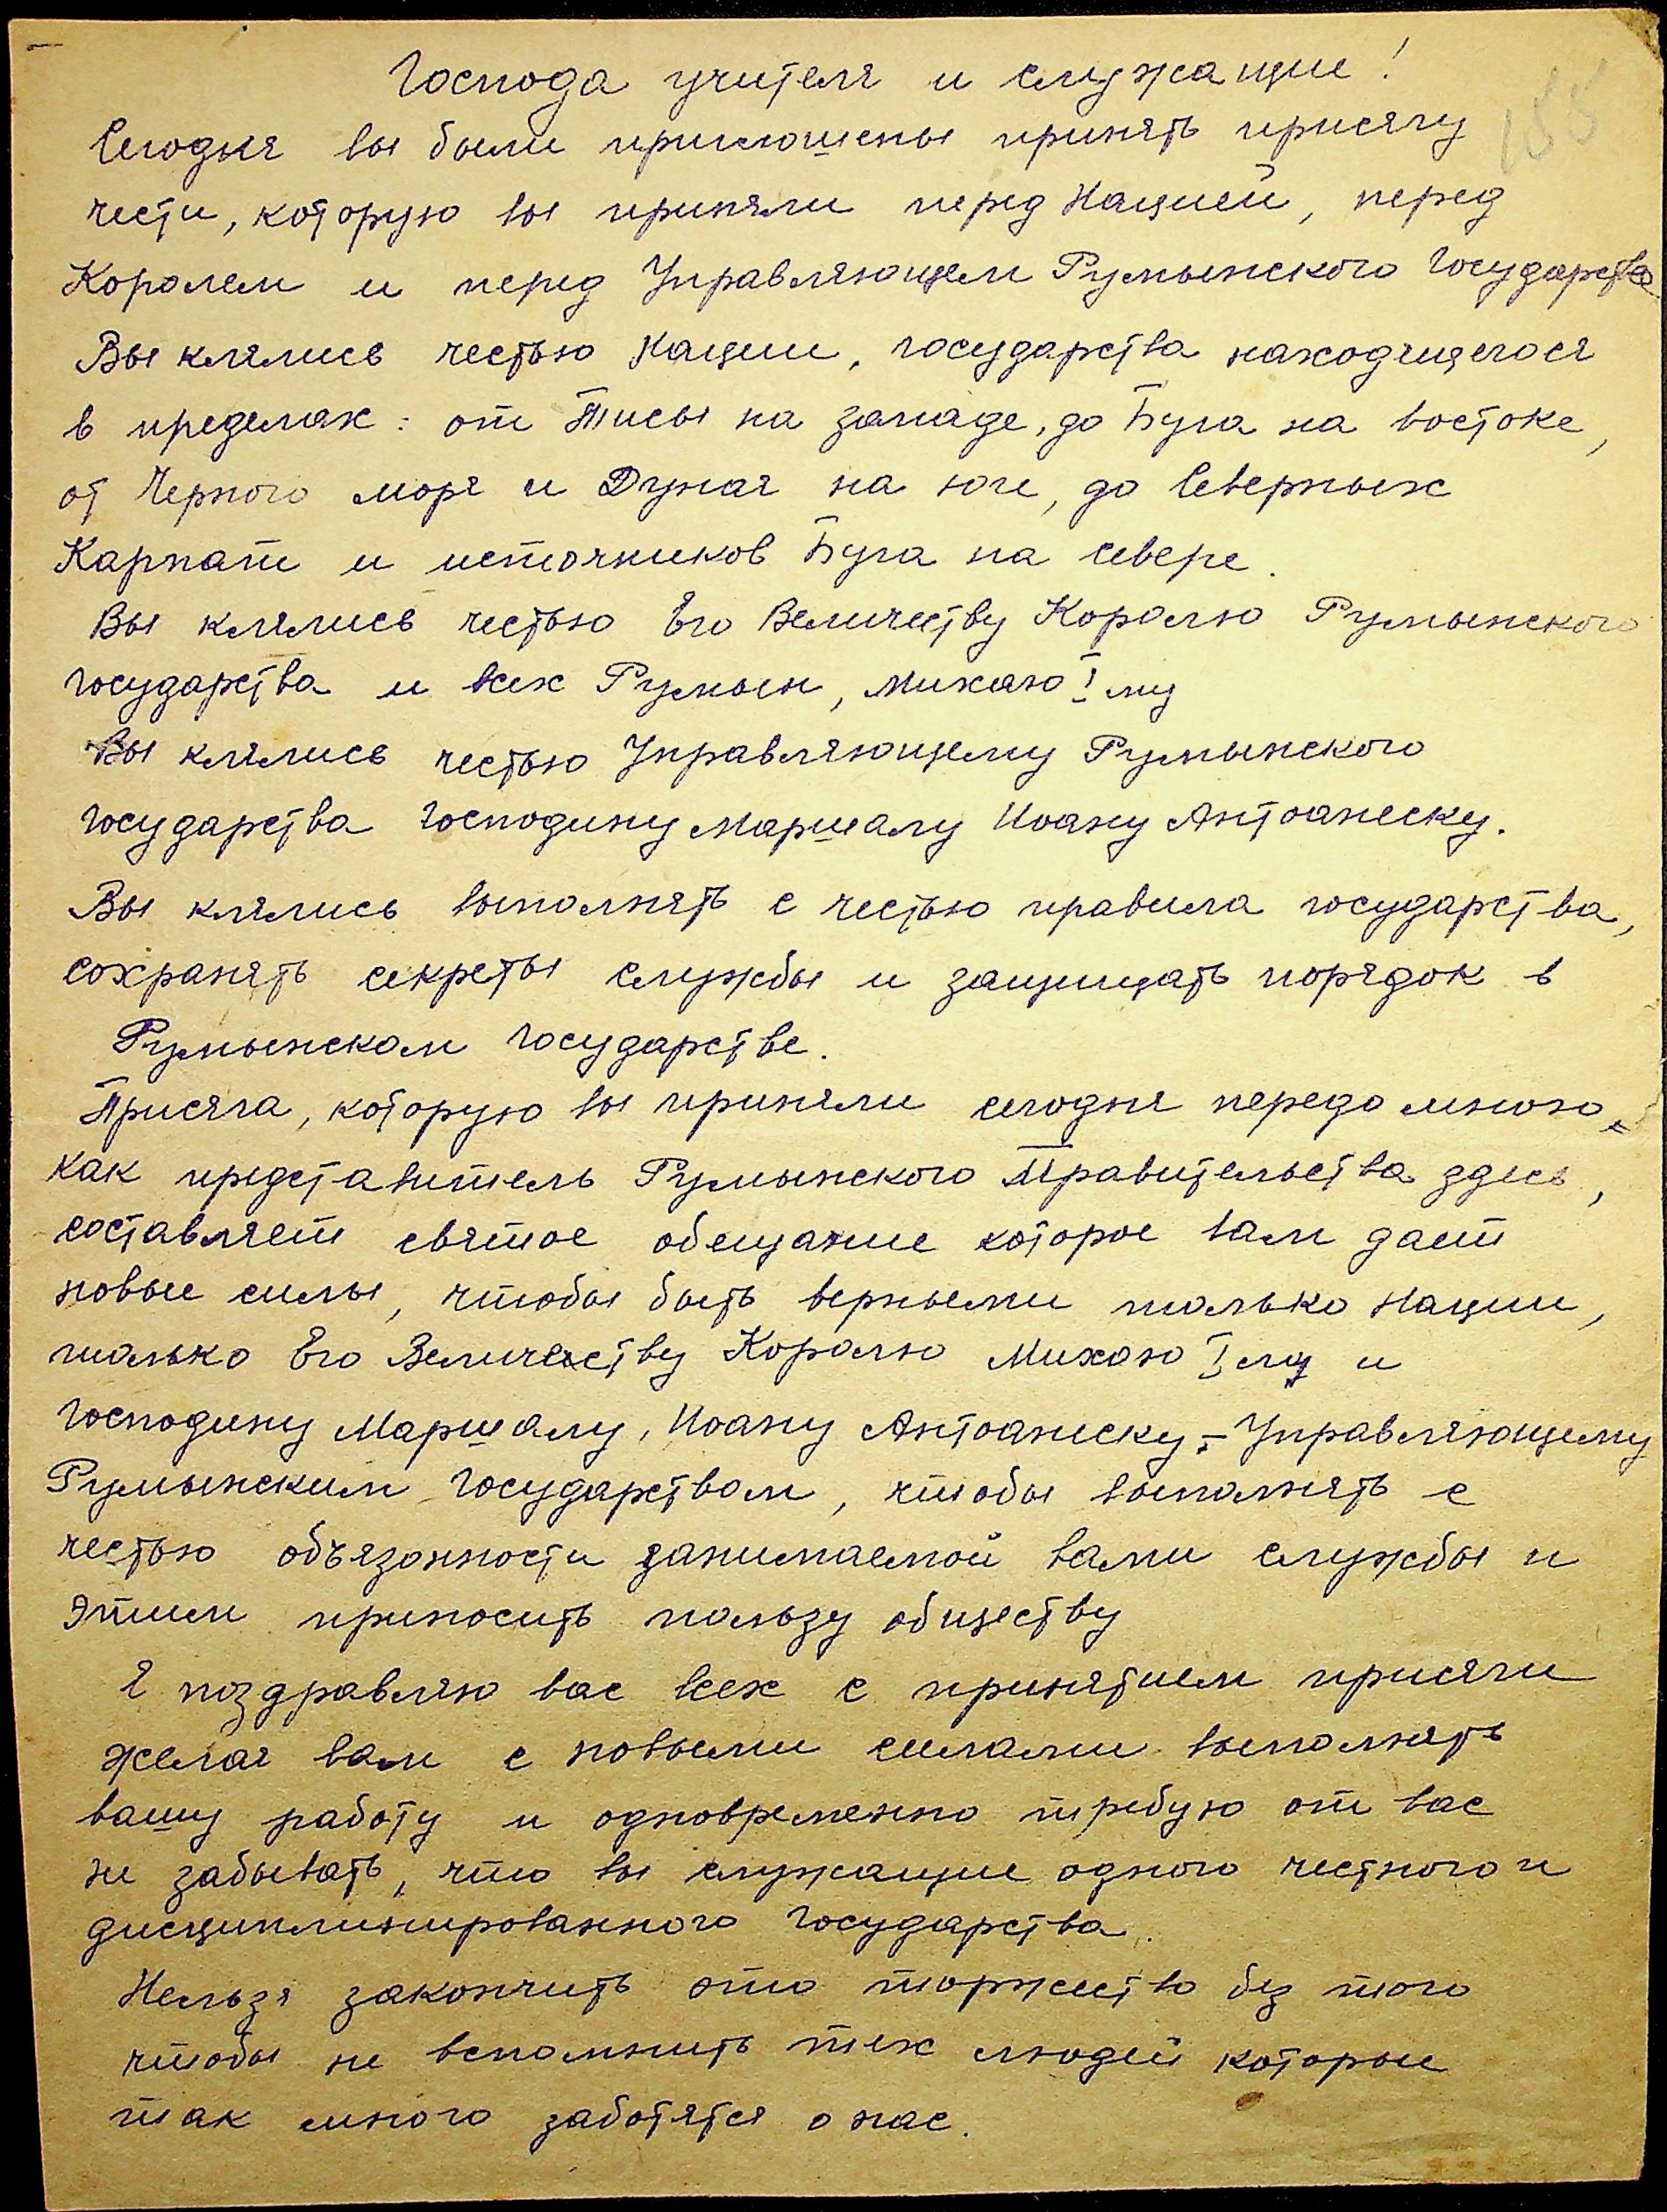 155
Господа учителя и служащие!
Сегодня вы были приглашены принять присягу
чести, которую вы приняли перед Нацией, перед
Королем и перед Управляющем Румынского Государства
Вы клялись честью Нации, государства находящегося
в пределах: от Тисы на западе, до Буга на востоке,
от Черного моря и Дуная на юге, до Северных
Карпат и источников Буга на севере.
Вы клялись честью Его Величеству Королю Румынского
государства и всех Румын, Михаю I му
Вы клялись честью Управляющему Румынского
государства Господину Маршалу Иоану Антоанеску.
Вы клялись выполнять с честью правила государства,
сохранять секреты службы и защищать порядок в
Румынском Государстве.
Присяга, которую вы приняли сегодня передо мною,
как представитель Румынского Правительства здесь,
составляет святое обещание которое вам дает
новые силы, чтобы быть верными только Нации,
только Его Величеству Королю Михаю I му и
Господину Маршалу, Иоану Антоанеску, - Управляющему
Румынским Государством, чтобы выполнять с
честью объязонности занимаемой вами службы и
этим приносить пользу обществу
Я поздравляю вас всех с принятием присяги
желая вам с новыми силами выполнять
вашу работу и одновременно требую от вас
не забывать, что вы служащие одного честного и
дисциплинированного Государства.
Нельзя закончить это торжество без того
чтобы не вспомнить тех людей которые
так много заботятся о нас.